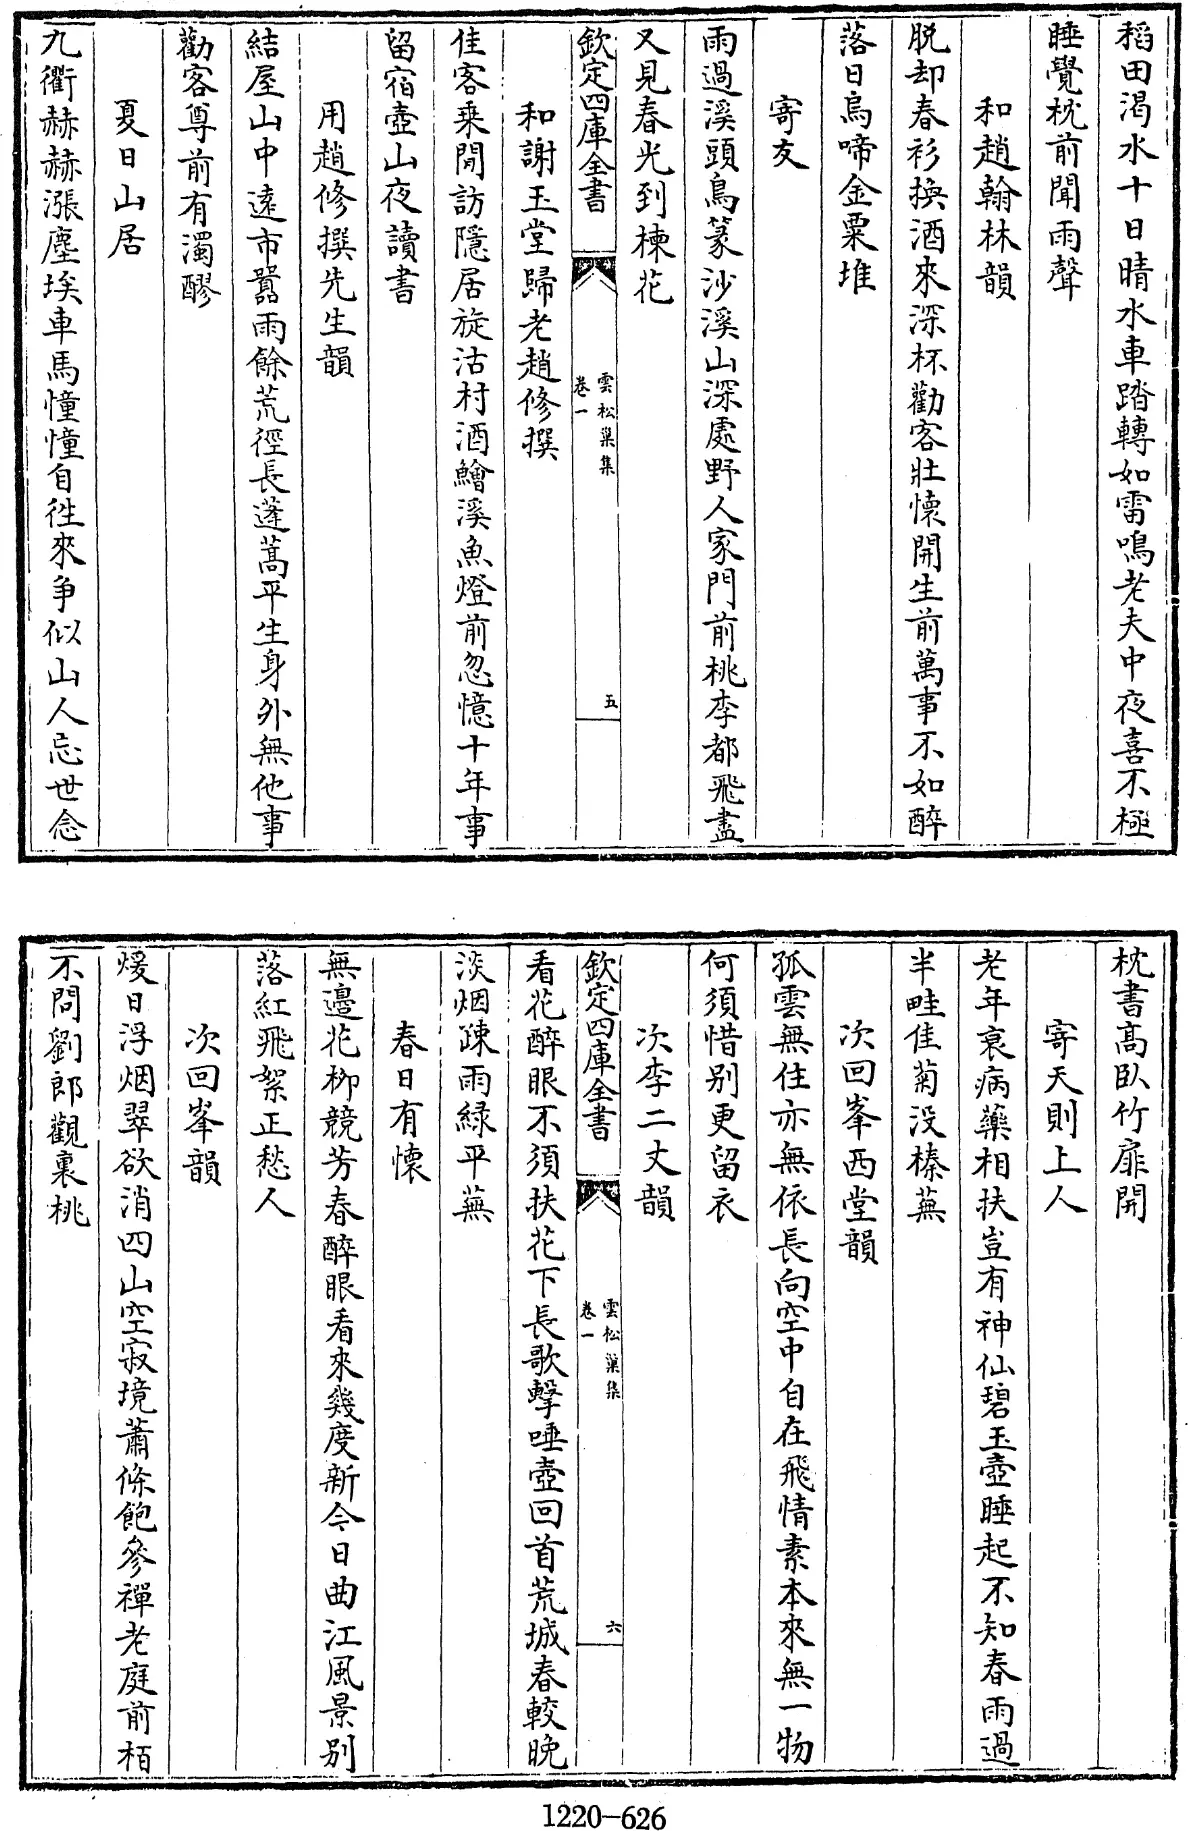 稻田渴水十日晴水車踏轉如雷鳴老夫中夜喜不極
睡覺枕前聞雨聲
和趙翰林韻
脱却春衫換酒來深杯勸客壯懷開生前萬事不如醉
落日烏啼金粟堆
寄友
雨過溪頭鳥篆沙溪山深處野人家門前桃李都飛盡
又見春光到楝花
欽定四庫全書
雲松巢集
卷一
五
和謝玉堂歸老趙修撰
佳客乗閒訪隱居旋沽村酒鱠溪魚燈前忽憶十年事
留宿壺山夜讀書
用趙修撰先生韻
結屋山中遠市囂雨餘荒徑長蓬蒿平生身外無他事
勸客尊前有濁醪
夏日山居
九衢赫赫漲塵埃車馬憧憧自徃來争似山人忘世念
枕書髙臥竹扉開
寄天則上人
老年衰病藥相扶豈有神仙碧玉壺睡起不知春雨過
半畦佳菊没榛蕪
次回峯西堂韻
孤雲無住亦無依長向空中自在飛情素本來無一物
何須惜别更留衣
次李二丈韻
欽定四庫全書
雲松巢集
卷一
六
看花醉眼不須扶花下長歌擊唾壺回首荒城春較晚
淡烟疎雨緑平蕪
春日有懷
無邊花柳競芳春醉眼看來幾度新今日曲江風景别
落紅飛絮正愁人
次回峯韻
煖日浮烟翠欲消四山空寂境蕭條飽參禪老庭前栢
不問劉郎觀裏桃
1220-626